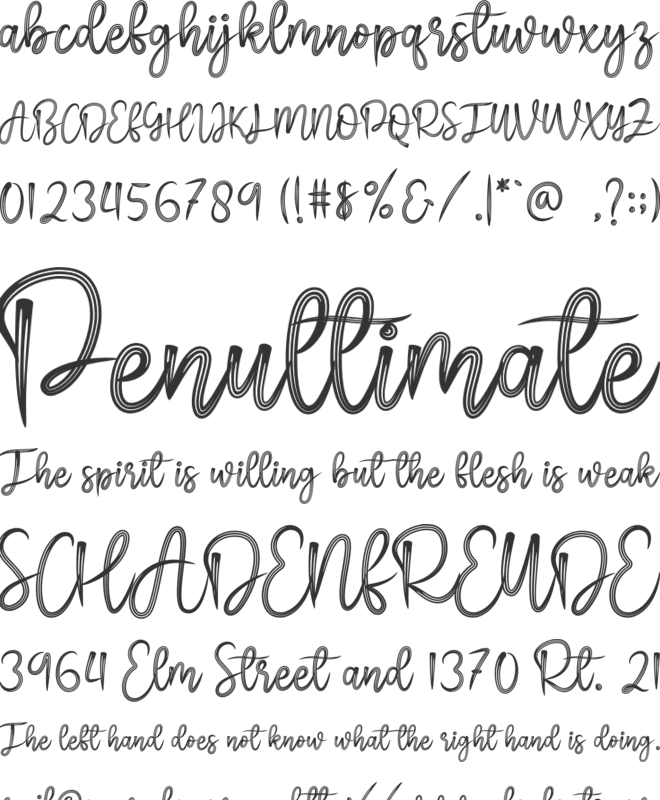 abcdefghijklmnopqrstuvwxyz
ABCDEFGHIJKLMNOPQRSTUVWXYZ
0123456789 (!#$%&/.|*`@ ,?:;)
Penultimate
The spirit is willing but the flesh is weak
SCHADENFREUDE
3964 Elm Street and 1370 Rt. 21
The left hand does not know what the right hand is doing.